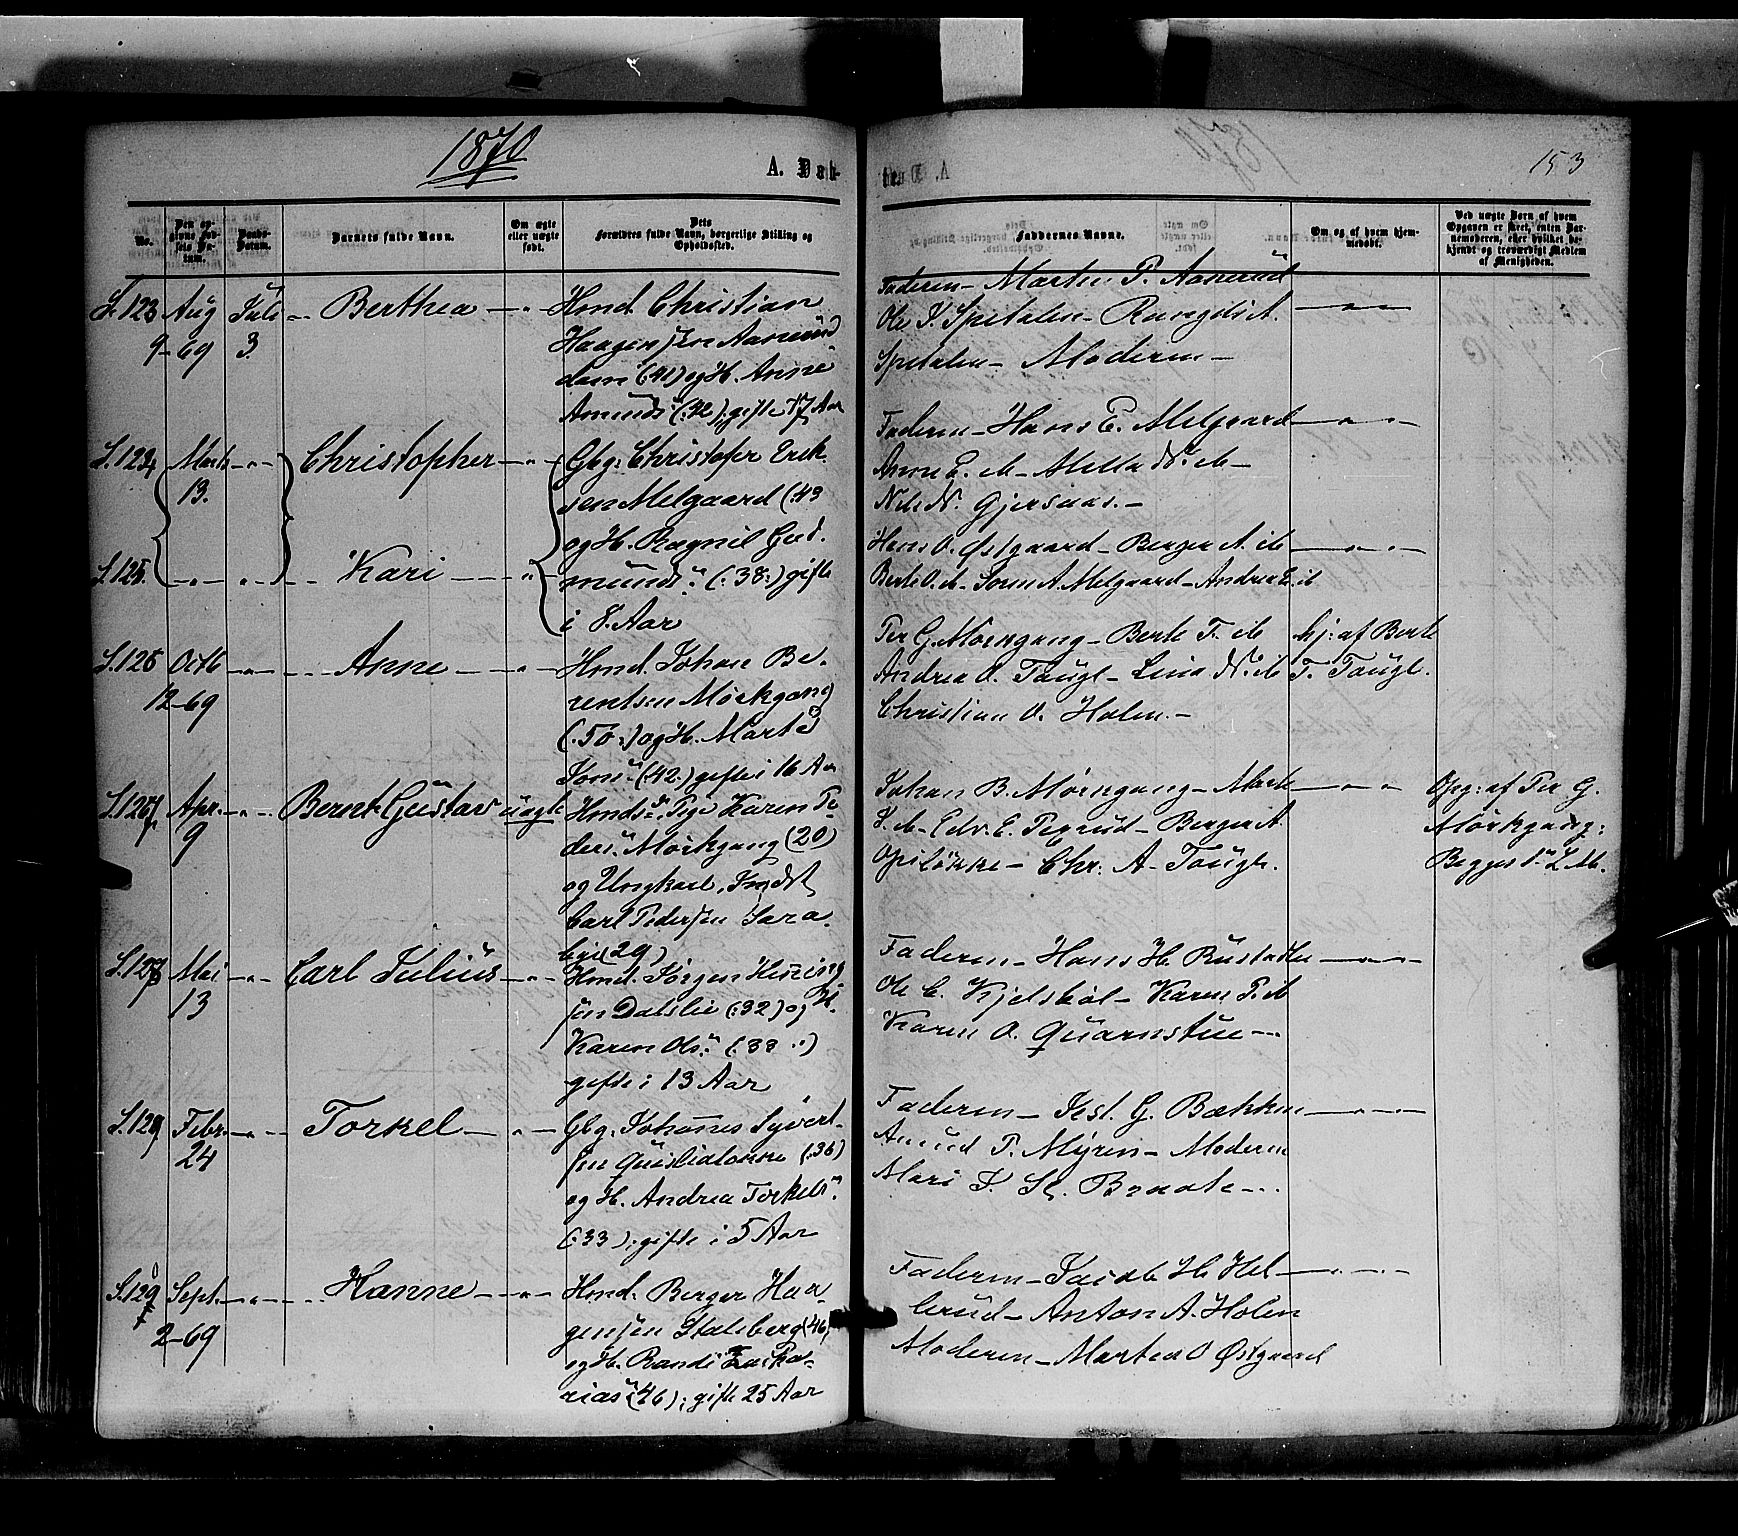 1870
A. Døb-
153
No.
Den op-
givne Fød-
sels Da-
tum.
Daabs-
Datum.
Barnets fulde Navn.
Om ægte
eller uægte
født.
Dets
Forældres fulde Navn, borgerlige Stilling og
Opholdssted.
Faddernes Navne.
Om og af hvem hjem-
medøbt.
Ved uægte Børn af hvem
Opgaven er skeet, enten Bar-
nemoderen, eller hvilket be-
kjendt og troværdigt Medlem
af Menigheden.
S. 123 Aug 9-69 Juli 3. Berthea
Hmd. Christian
Haagensen Aanerud
(41) og H. Anne
Amunds" (:42), gifte 17 Aar
Faderen - Marthe P. Aanerud
Ole J. Spitalen - Rangdi A.
Spitalen - Moderen -
S. 124 Marts 13. Christopher
Gbg: Christofer Erik-
sen Melgaard (43
og H. Ragnil Gud-
munds" (:38:) gifte
i 8. Aar
Faderen - Hans E. Melgaard
Anne E. ib - Mella N. ib -
Nils N. Gjersaas. -
S. 125. Kari
Hans O. Østgaard - Berger A. ib
Berte O. ib - Soren A. Melgaard - Andrea E. ib
S. 126 Octb 12-69 Anne
Hmd. Johan Be-
rentsen Mørkgang
(:50:) og H. Marte
Ivers" (:42:) gifte i 16 Aar
Per G. Mørkgang - Berte T. ib
Andrea O. Taugl - Lina N. ib
Christian O. Holen. -
hj: af Berte
T. Taugl.
S. 127 Apr. 9 Bernt Gustav uægte
Hmds. Pige Karen Pe-
ders" Mørkgang (20)
og Ungkarl, Indst
Carl Pedersen Sara-
(29)
Johan B. Mørkgang - Marte
I. ib - Edv. E. Pegrud - Berger A.
Opsløkke - Chr: A. Taugl.
Opg: af Per G.
Mørkgang:
Begges 1ste L. M.
S. 128 Mai 13 Carl Julius
Hmd. Jørgen
sen Dalslie (:32) og H.
Karen Ols" (:33:)
gifte i 13 Aar
Faderen - Hans H. Rustadlie
Ole C. Kjelsbøl - Karen P. ib
Karen O. Quærnstue -
S. 129 Febr. 24 Torkel
Gbg. Johannes Syvert-
sen Quisliløkke (:36)
og H. Andrea Torkels"
(:33), gifte i 5 Aar
Faderen - G. Bækken
Amund P. Myren - Moderen
Mari J. Braate -
S. 129 Sept. 2-69 Hanne
Hmd. Berger Haa-
gensen Stalsberg (46)
og H. Randi Zacha-
rias" (46); gifte 25 Aar
Faderen - Jacob H. Hel-
lerud - Anton A. Holen
Moderen - Marthea O Østgaard